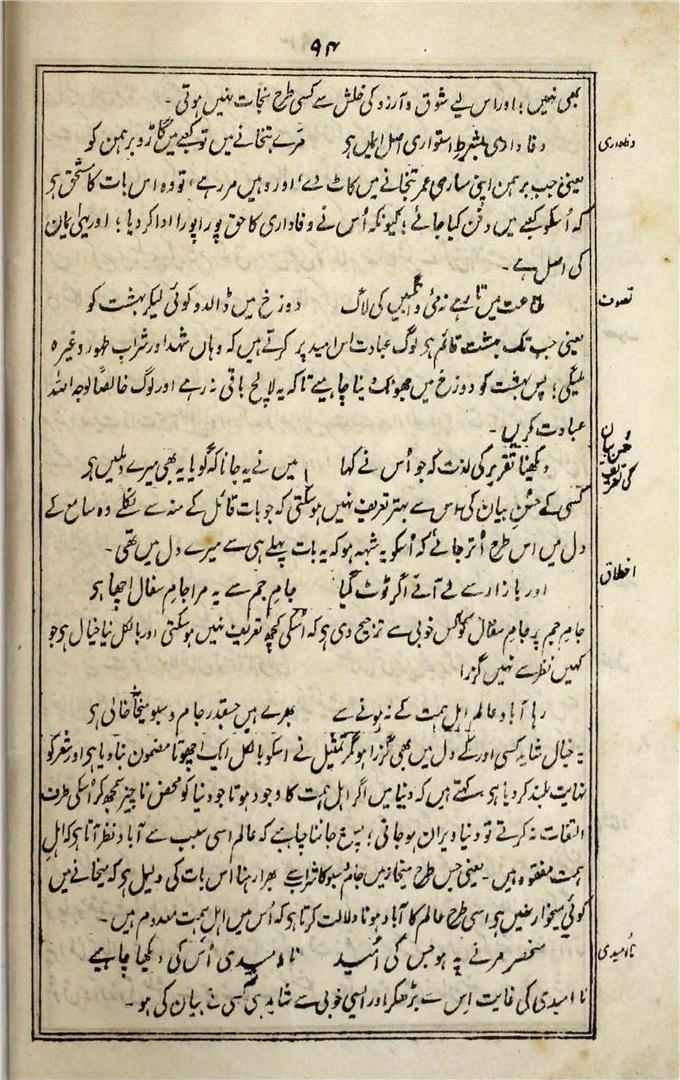 ۹۴
بھی نہیں؛ اور اس لیے شوق و آرزو کی خلش سے کسی طرح نجات نہیں ہوتی۔
وفاداری
وفاداری بشرط استواری اصل ایماں ہی مرے بتخانے میں تو کعبے میں گاڑو برہمن کو
یعنی جب برہمن اپنی ساری عمر بتخانے میں کاٹ دے؛ اور وہیں مر رہے؛ تو وہ اس بات کا مستحق ہی
کہ اُسکو کعبے میں دفن کیا جائے؛ کیونکہ اُس نے وفاداری کا حق پورا پورا ادا کر دیا؛ اور یہی ایمان
کی اصل ہے۔
تصوف
طاعت میں تا رہے نہ مئی و انگبیں کی لاگ دوزخ میں ڈالدو کوئی لیکر بہشت کو
یعنی جب تک بہشت قائم ہی لوگ عبادت اس امید پر کرتے ہیں کہ وہاں شہد اور شراب طہور وغیرہ
ملیگی؛ پس بہشت کو دوزخ میں جھونک دینا چاہیے تاکہ یہ لالچ باقی نہ رہے اور لوگ خالصًا لوجہ اللہ
عبادت کریں۔
حُسن بیان کی تعریف
دیکھنا تقریر کی لذت کہ جو اُس نے کہا میں نے یہ جانا کہ گویا یہ بھی میرے دلمیں ہی
کسی کے حُسنِ بیان کی اس سے بہتر تعریف نہیں ہوسکتی کہ جو بات قائل کے منہ سے نکلے وہ سامع کے
دل میں اس طرح اُتر جائے کہ اُسکو یہ شبہہ ہو کہ یہ بات پہلے ہی سے میرے دل میں تھی۔
اخلاق
اور بازار سے لے آئے اگر ٹوٹ گیا جامِ جم سے یہ مرا جامِ سفال اچھا ہی
جامِ جم پر جامِ سفال کو کس خوبی سے ترجیح دی ہی کہ اُسکی کچھ تعریف نہیں ہوسکتی اور بالکل نیا خیال ہی جو
کہیں نظر سے نہیں گزرا
رہا آباد عالم اہلِ ہمت کے نہ ہونے سے بھرے ہیں جسقدر جام و سبو میخانہ خالی ہی
یہ خیال شاید کسی اور کے دل میں بھی گزرا ہو مگر تمثیل نے اسکو بالکل ایک اچھوتا مضمون بنا دیا ہی اور شعر کو
نہایت بلند کر دیا ہی۔ کہتے ہیں کہ دنیا میں اگر اہل ہمت کا وجود ہوتا جو دنیا کو محض ناچیز سمجھ کر اُسکی طرف
التفات نہ کرتے تو دنیا ویران ہو جاتی؛ جاننا چاہیے کہ عالم اسی سبب سے آباد نظر آتا ہی کہ اہل
ہمت مفقود ہیں۔ یعنی جس طرح میخانہ میں جام و سبو کا شراب سے بھرا رہنا اس بات کی دلیل ہی کہ میخانے میں
کوئی میخوار نہیں ہی اسی طرح عالم کا آباد ہونا دلالت کرتا ہی کہ اُس میں اہل ہمت معدوم ہیں۔
نااُمیدی
منحصر مرنے پہ ہو جس کی اُمید نااُمیدی اُس کی دیکھا چاہیے
نا امیدی کی غایت اِس سے بڑھکر اور ایسی خوبی سے شاید ہی کسی نے بیان کی ہو۔